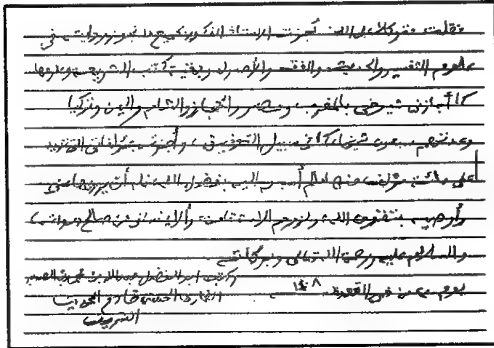 فقلت متوكلا على الله: أجزت الأستاذ المذكور بجميع ما تجوز روايته في
علوم التفسير والحديث والفقه والأصول وبقية كتب الشريعة وعلومها
كما أجازني شيوخي بالمغرب ومصر والحجاز والشام واليمن وتركيا
وعدتهم سبعون شيخا، كما في سبيل التوفيق، وأجزته بمؤلفاتي
على مائة مؤلف منها ما لم
وأوصيه بتقوى الله ولزوم الاستقامة وألا ينساني من صالح دعواته،
والسلام عليه ورحمة الله تعالى وبركاته
وكتبه أبو الفضل عبد الله بن محمد بن الصديق
الغماري الحسني خادم الحديث
الشريف
يوم من ذي القعدة